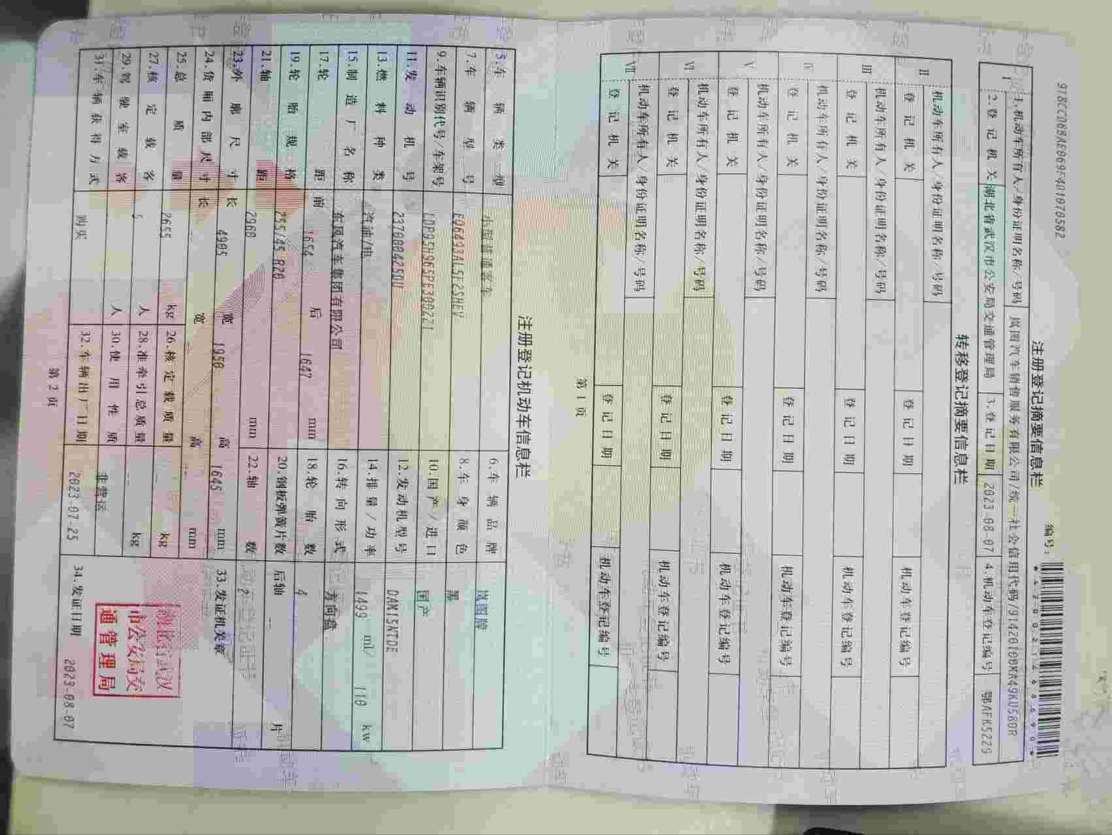 918CCD6BAE069F401070582
注册登记摘要信息栏
编号：
I
1.机动车所有人/身份证明名称/号码 岚图汽车销售服务有限公司/统一社会信用代码/91420100MA49KU580R
2.登记机关 湖北省武汉市公安局交通管理局 3.登记日期 2023-08-07 4.机动车登记编号 鄂AFK5229
转移登记摘要信息栏
II
机动车所有人/身份证明名称/号码
登记机关 登记日期 机动车登记编号
III
机动车所有人/身份证明名称/号码
登记机关 登记日期 机动车登记编号
IV
机动车所有人/身份证明名称/号码
登记机关 登记日期 机动车登记编号
V
机动车所有人/身份证明名称/号码
登记机关 登记日期 机动车登记编号
VI
机动车所有人/身份证明名称/号码
登记机关 登记日期 机动车登记编号
VII
机动车所有人/身份证明名称/号码
登记机关 登记日期 机动车登记编号
第 1 页
注册登记机动车信息栏
5.车辆类型 小型普通客车 6.车辆品牌 岚图牌
7.车辆型号 EQ6493AL5F2SHEV 8.车身颜色 黑
9.车辆识别代号/车架号 LDP95H965PE300221 10.国产/进口 国产
11.发动机号 23700042SDU 12.发动机型号 DAM15NTDE
13.燃料种类 汽油/电 14.排量/功率 1499 ml/ 110 kw
15.制造厂名称 东风汽车集团有限公司 16.转向形式 方向盘
17.轮距 前 1654 后 1647 mm 18.轮胎数 4
19.轮胎规格 255/45 R20 20.钢板弹簧片数 后轴 -- 片
21.轴距 2960 mm 22.轴数 2
23.外廓尺寸 长 4905 宽 1950 高 1645 mm 33.发证机关章
24.货厢内部尺寸 长 宽 高 mm
25.总质量 2655 kg 26.核定载质量 kg
27.核定载客 5 人 28.准牵引总质量 kg
29.驾驶室载客 人 30.使用性质 非营运
31.车辆获得方式 购买 32.车辆出厂日期 2023-07-25 34.发证日期 2023-08-07
湖北省武汉
市公安局交
通管理局
第 2 页